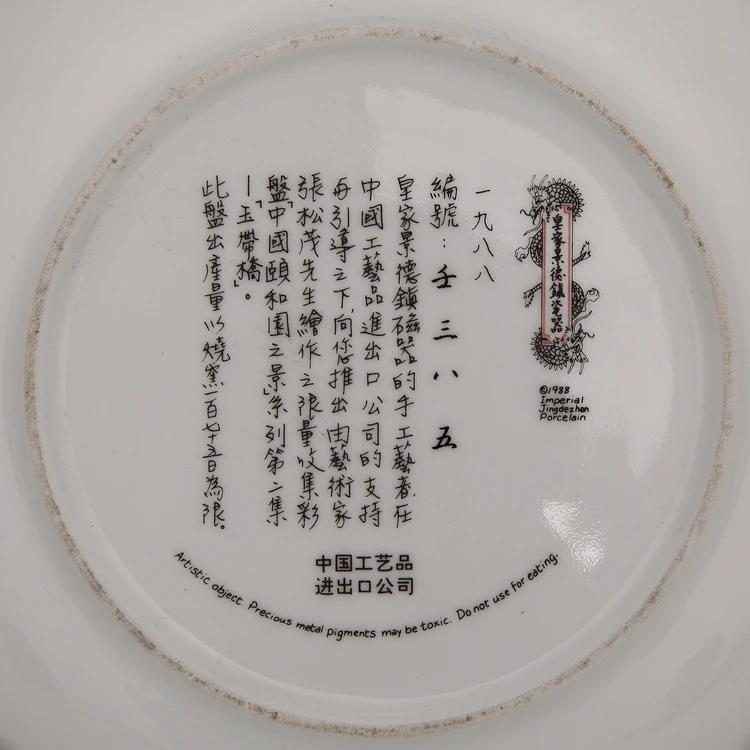 皇家景德鎮瓷器
©1988
Imperial
Jingdezhen
Porcelain
一九八八
編號：壬三八五
皇家景德鎮磁器的手工藝者在
中國工藝品進出口公司的支持
與引導之下，向您推出由藝術家
張松茂先生繪作之限量收集彩
盤「中國頤和園之景」系列第二集
—「玉帶橋」。
此盤出產量以燒窯一百七十五日為限。
中国工艺品
进出口公司
Artistic object. Precious metal pigments may be toxic. Do not use for eating.